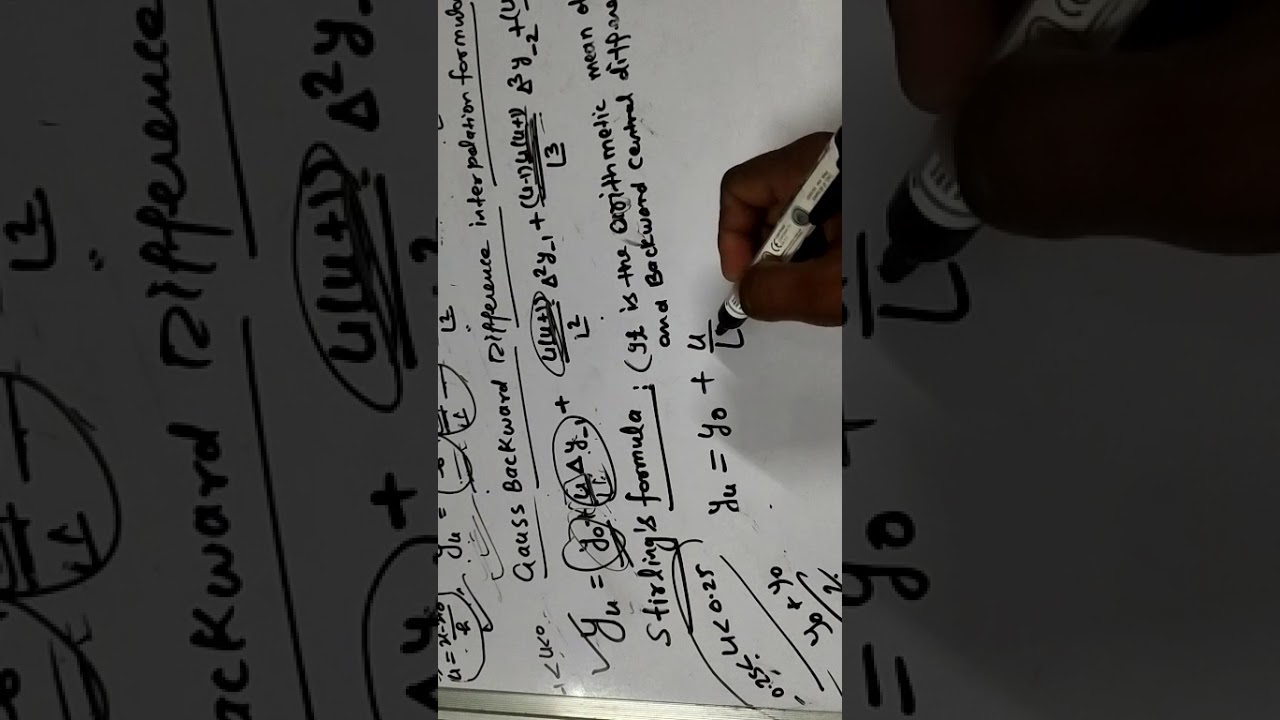 u = x-x0/h
yu =
Gauss Backward Difference interpolation formula
-1<u<0
yu = y0 + u/⌊1 Δy-1 + u(u+1)/⌊2 Δ²y-1 + (u-1)u(u+1)/⌊3 Δ³y-2 + (u
Stirling's formula : (It is the arithmetic mean o
and Backward central differe
-0.25<u<0.25
yu = y0 + u/⌊
y0+y0/2